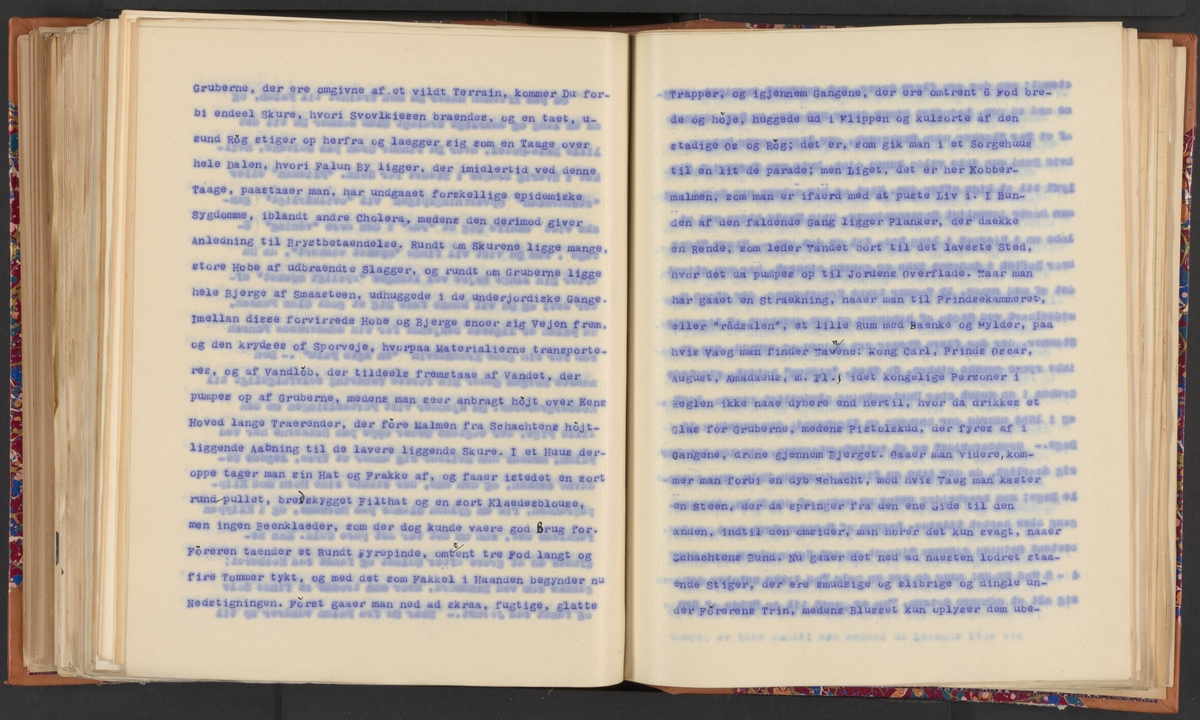 Gruberne, der ere omgivne af et vildt Terrain, kommer Du for-
bi endeel Skure, hvori Svovlkiesen braendes, og en taet, u-
sund Rŏg stiger op herfra og laegger sig som en Taage over
hele Dalen, hvori Falun By ligger, der imidlertid ved denne
Taage, paastaaer man, har undgaaet forskellige epidemiske
Sygdomme, iblandt andre Cholera, medens den derimod giver
Anledning til Brystbetaendelse. Rundt om Skurene ligge mange,
store Hobe af udbraendte Slagger, og rundt om Gruberne ligge
hele Bjerge af Smaasteen, udhuggede i de underjordiske Gange.
Imellan disse forvirrede Hobe og Bjerge snoer sig Vejen frem,
og den krydses of Sporveje, hvorpaa Materialierne transporte-
res, og af Vandlŏb, der tildeels fremstaae af Vandet, der
pumpes op af Gruberne, medens man seer anbragt hŏjt over Eens
Hoved lange Traerender, der fŏre Malmen fra Schachtens hŏjt-
liggende Aabning til de lavere liggende Skure. I et Huus der-
oppe tager man sin Hat og Frakke af, og faaer istedet en sort
rundpullet, bredskygget Filthat og en sort Klaedesblouse,
men ingen Beenklaeder, som der dog kunde vaere god Brug for.
Fŏreren taender et Bundt Fyrepinde, omtrent tre Fod langt og
fire Tommer tykt, og med det som Fakkel i Haanden begynder nu
Nedstigningen. Fŏrst gaaer man ned ad skraa, fugtige, glatte
Trapper, og igjennem Gangene, der ere omtrent 6 Fod bre-
de og hŏje, huggede ud i Klippen og kulsorte af den
stadige Os og Rŏg; det er, som gik man i et Sorgehuus
til en lit de parade; men Liget, det er her Kobber-
malmen, som man er ifaerd med at puste Liv i. I Bun-
den af den faldende Gang ligger Planker, der daekke
en Rende, som leder Vandet bort til det laveste Sted,
hvor det da pumpes op til Jordens Overflade. Naar man
har gaaet en Straekning, naaer man til Prindsekammeret,
eller "rådsalen", et lille Rum med Baenke og Hylder, paa
hvis Vaeg man finder Navnene: Kong Carl, Prinds Oscar,
August, Amadaeus, m. Fl., idet kongelige Personer i
Reglen ikke naae dybere end hertil, hvor da drikkes et
Glas for Gruberne, medens Pistolskud, der fyres af i
Gangene, drŏne gjennem Bjerget. Gaaer man videre, kom-
mer man forbi en dyb Schacht, mod hvis Vaeg man kaster
en Steen, der da springer fra den ene Side til den
anden, indtil den omsider, man hŏrer det kun svagt, naaer
Schachtens Bund. Nu gaaer det ned ad naesten lodret staa-
ende Stiger, der ere smudsige og slibrige og dingle un-
der Fŏrerens Trin, medens Blusset kun oplyser dem ube-